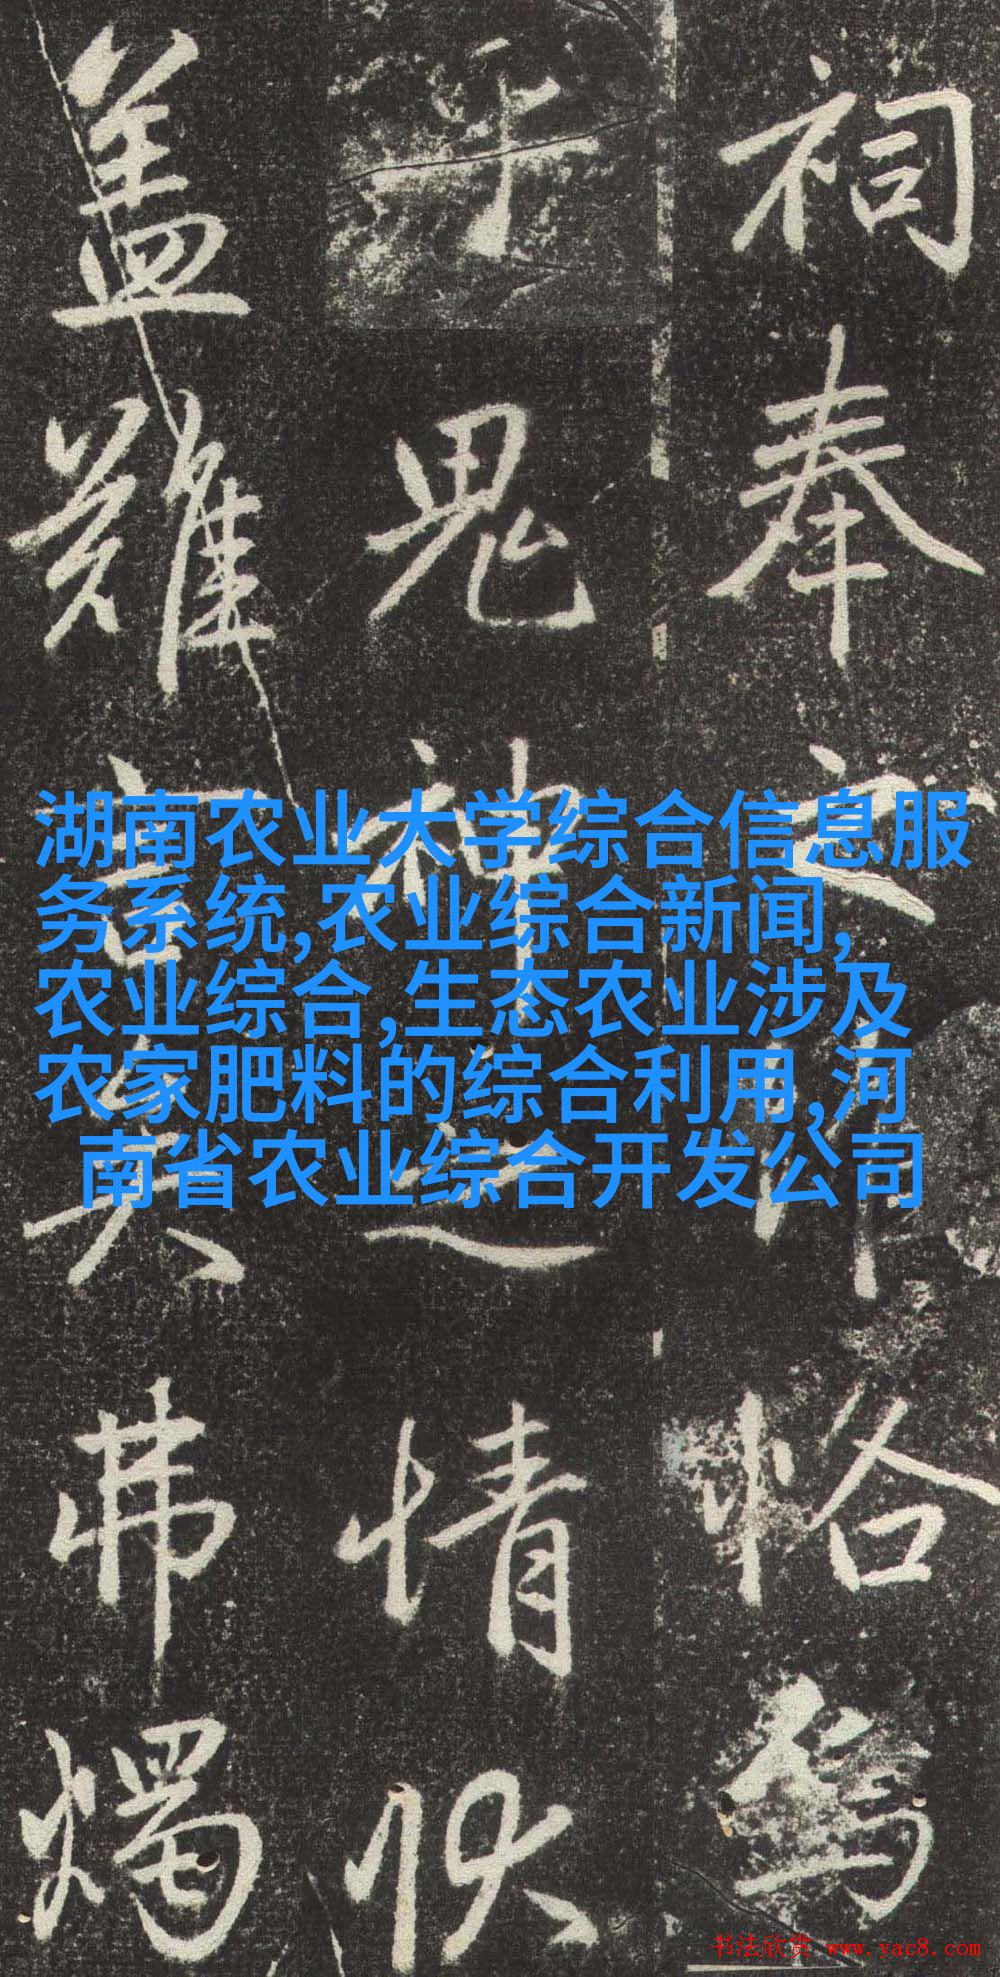 祠奉
恪焉
于鬼神之情状
盖难言矣
弗烛
湖南农业大学综合信息服
务系统,农业综合新闻,
农业综合,生态农业涉及
农家肥料的综合利用,河
南省农业综合开发公司
书法欣赏 www.yac8.com